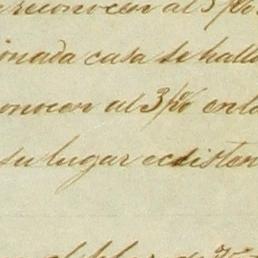 reconocer al 3 p%
ionada casa se hall
onocer al 3 p% en l
su lugar ecsisten